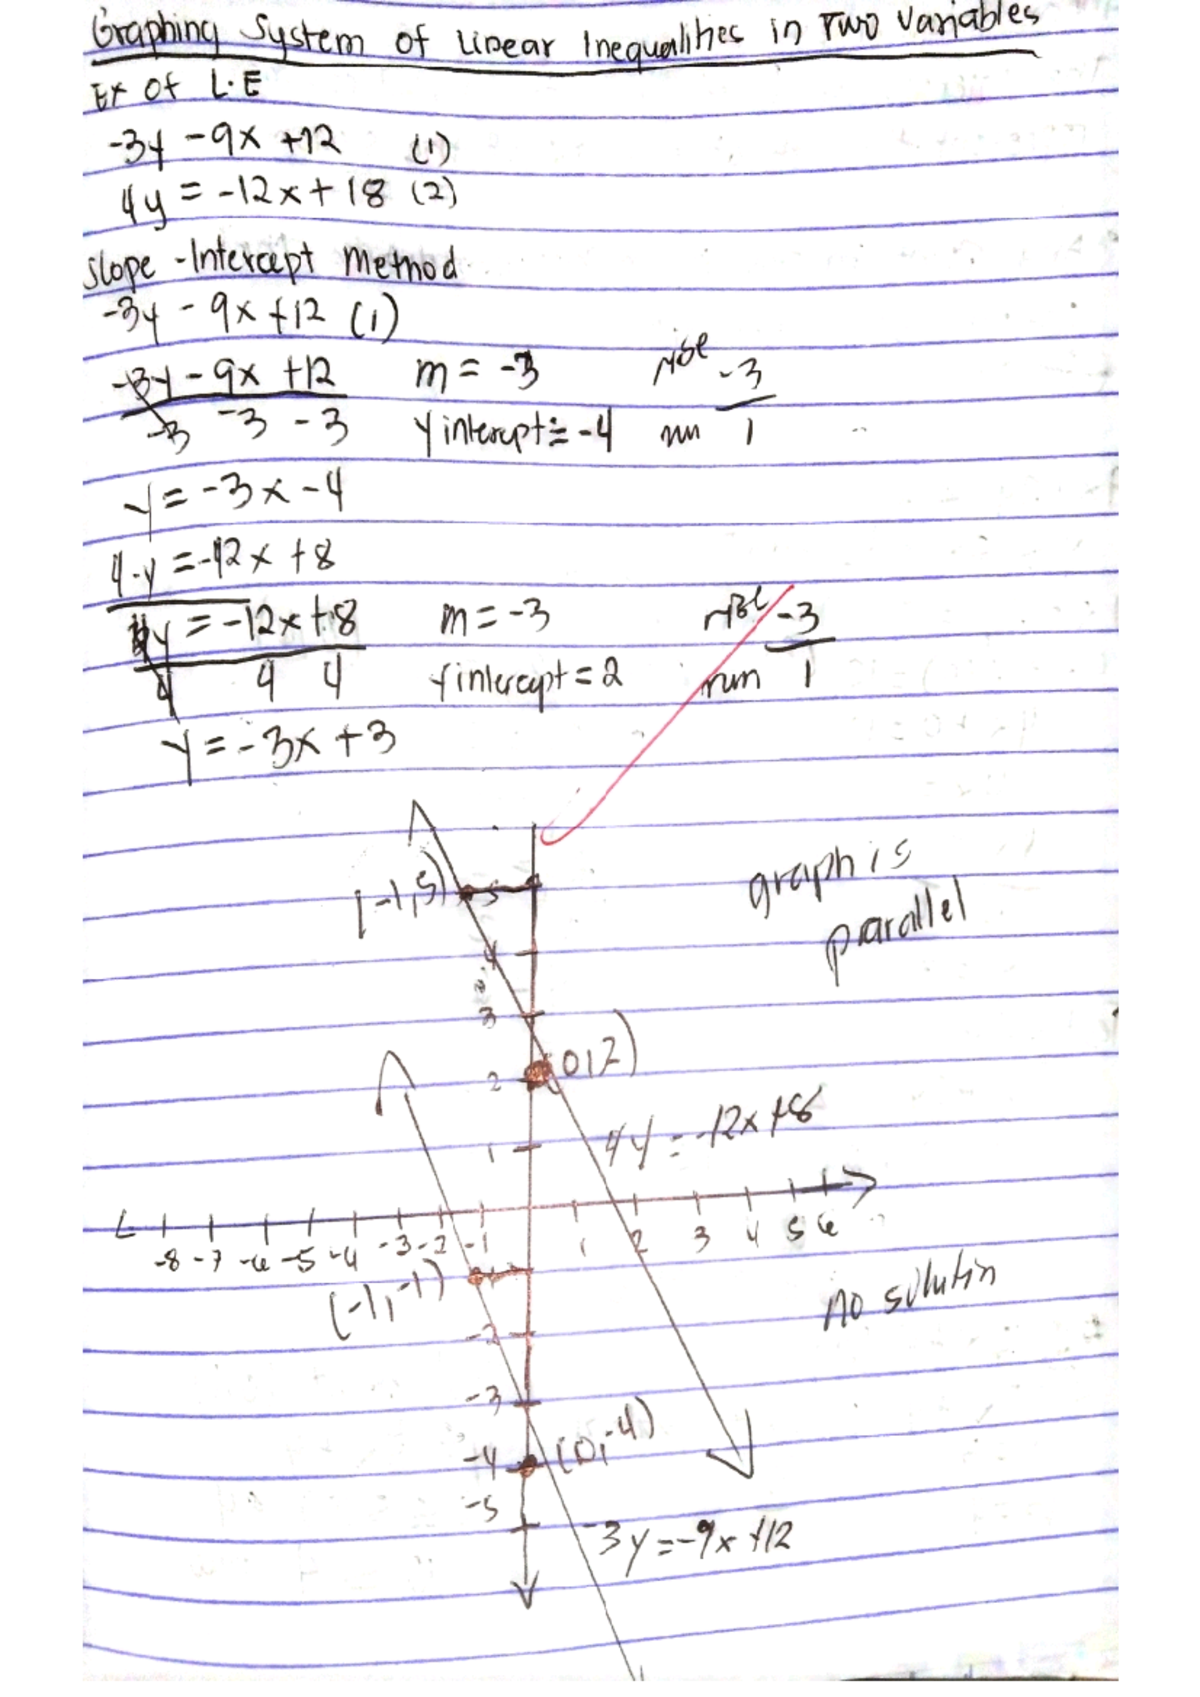 Graphing System of Linear Inequalities in Two Variables
Ex Of L.E
-3y - 9x +12 (1)
4y = -12x + 18 (2)
Slope - Intercept Method
-3y - 9x +12 (1)
-3y - 9x +12 m = -3 rise -3
-3 -3 -3 y intercept = -4 run 1
y = -3x - 4
4-y = -12x +8
4y = -12x +8 m = -3 rise -3
4 4 4 y intercept = 2 run 1
y = -3x + 3
(-1,5) 5
graph is
parallel
4
3
2 (0,2)
4y = -12x +8
1
-8 -7 -6 -5 -4 -3 -2 -1 1 2 3 4 5 6
(-1,-1)
no solutin
-2
-3
-4 (0,-4)
-5
-3y = -9x +12